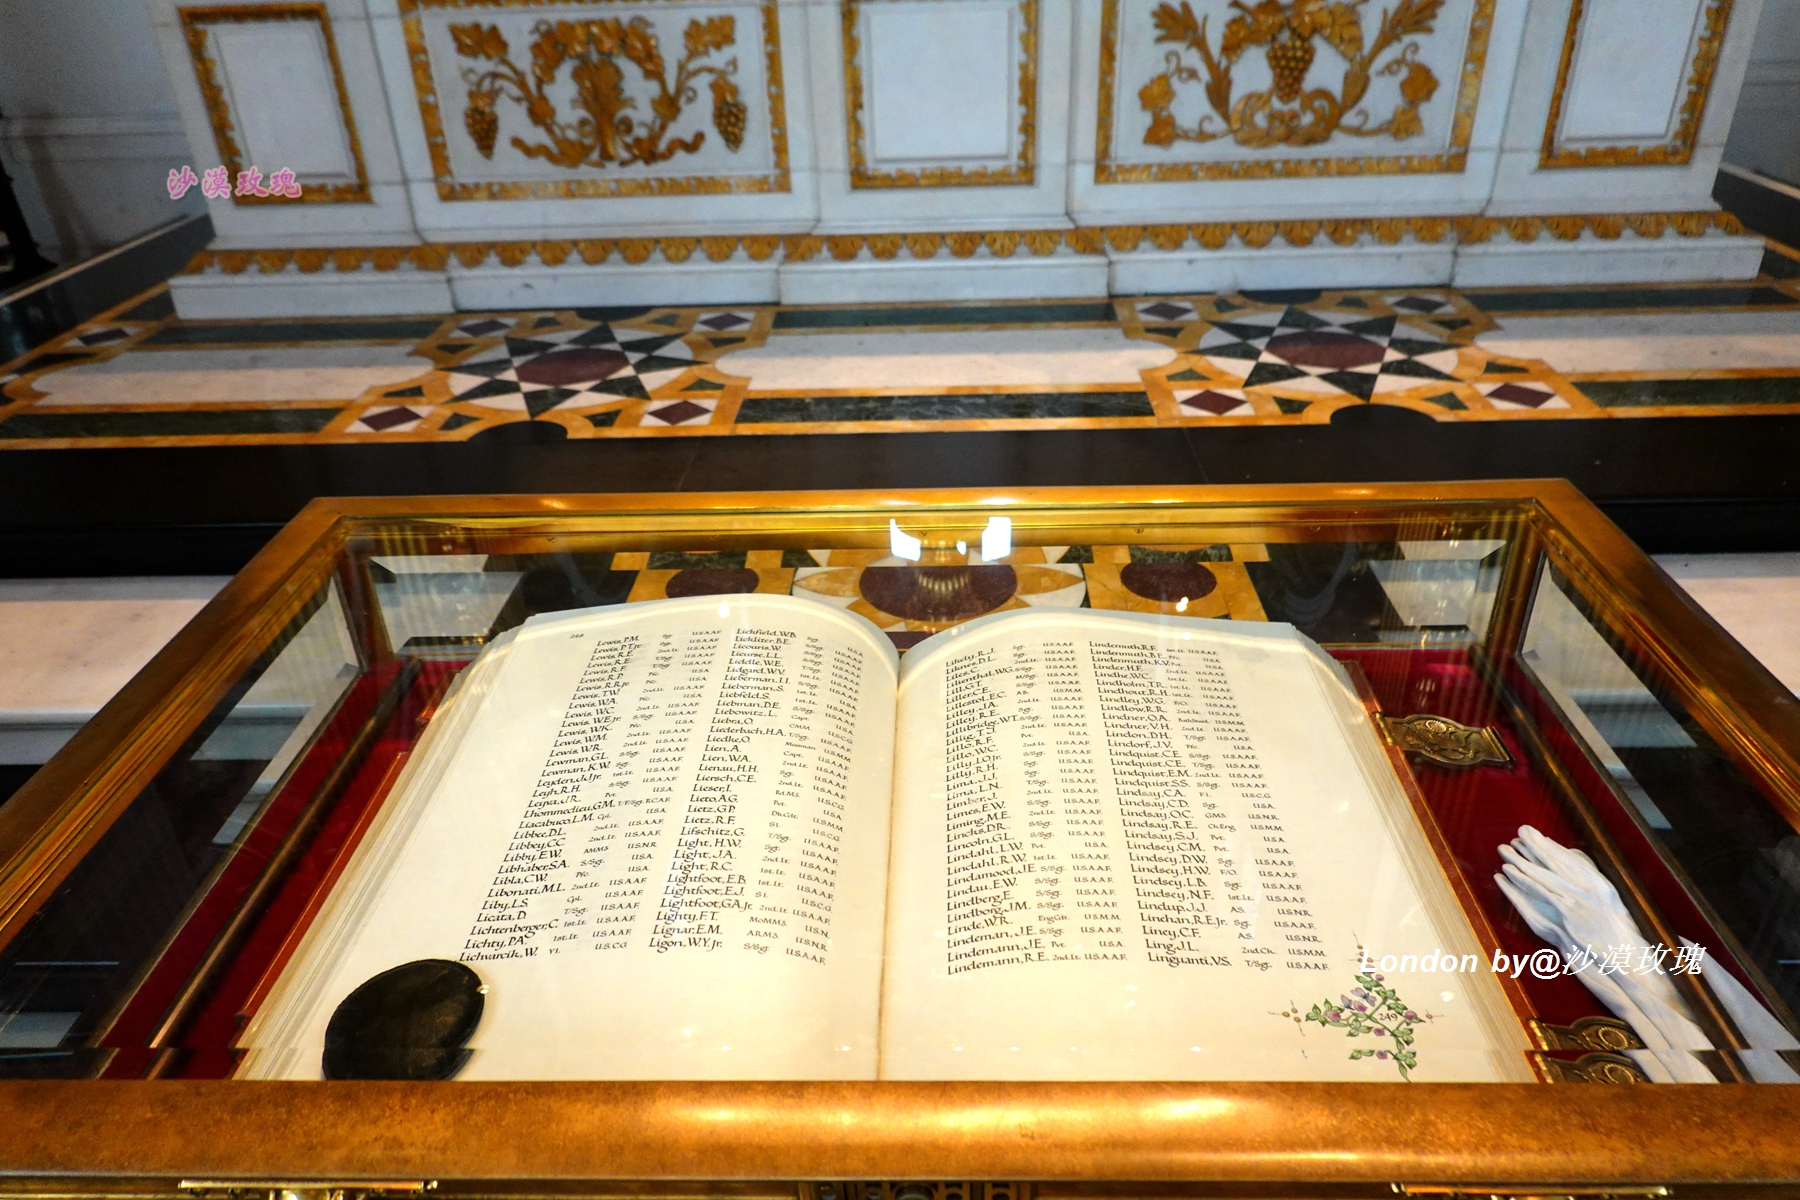 沙漠玫瑰
248
Lewis, P.M. Sgt. U.S.A.A.F.
Lewis, P.T. Jr. Sgt. U.S.A.A.F.
Lewis, R.E. 2nd.Lt. U.S.A.A.F.
Lewis, R.E.
Lewis, R.F.
Lewis, R.P.
Lewis, R.R. Jr.
Lewis, T.W.
Lewis, W.A.
Lewis, W.C.
Lewis, W.E. Jr.
Lewis, W.K.
Lewis, W.M.
Lewis, W.R.
Lewman, G.L.
Lewman, K.W. S/Sgt. U.S.A.A.F.
Leyden, J.J. Jr. 1st.Lt. U.S.A.A.F.
Leyh, R.H. S/Sgt. U.S.A.A.F.
Lejna, J.R. Pvt. U.S.A.
Lhommedieu, G.M. T/F/Sgt. R.C.A.F.
Liacabuco, L.M. Cpl. U.S.A.
Libbee, D.L. 2nd.Lt. U.S.A.A.F.
Libbey, C.C. 2nd.Lt. U.S.A.A.F.
Libby, E.W. AMMS U.S.N.R.
Libhaber, S.A. S/Sgt. U.S.A.
Libla, C.W. Pfc. U.S.A.
Libonati, M.L. 2nd.Lt. U.S.A.A.F.
Liby, L.S. Cpl. U.S.A.
Licata, D. T/Sgt. U.S.A.A.F.
Lichtenberger, C. 1st.Lt. U.S.A.A.F.
Lichty, P.A. 1st.Lt. U.S.A.A.F.
Lichvarcik, W. Y1. U.S.C.G.
Lickfield, W.B. Sgt. U.S.A.
Lickliter, B.E.
Licouris, W.
Licurse, L.L.
Liddle, W.E.
Lidgard, W.V.
Lieberman, I.I.
Lieberman, S.
Liebfeld, S.
Liebman, D.E.
Liebowitz, L.
Liebra, O.
Liederbach, H.A. T/Sgt.
Liedke, O.
Lien, A.
Lien, W.A.
Lienau, H.H. 2nd.Lt. U.S.A.A.F.
Liersch, C.E. Sgt.
Lieser, I.
Lieto, A.G.
Lietz, G.P.
Lietz, R.F.
Lifschitz, G.
Light, H.W. T/Sgt. U.S.A.A.F.
Light, J.A. Sgt. U.S.A.A.F.
Light, R.C. 2nd.Lt. U.S.A.A.F.
Lightfoot, E.B. 1st.Lt. U.S.A.A.F.
Lightfoot, E.J. S1. U.S.C.G.
Lightfoot, G.A. Jr. 2nd.Lt. U.S.A.A.F.
Lighty, F.T. MoMMS. U.S.N.
Lignar, E.M. ARMS. U.S.N.R.
Ligon, W.Y. Jr. S/Sgt. U.S.A.A.F.
Likely, R.J. Sgt. U.S.A.A.F.
Liknes, D.L. Sgt. U.S.A.A.F.
Liles, C. 2nd.Lt. U.S.A.A.F.
Lilienthal, W.G. S/Sgt. U.S.A.A.F.
Lill, G.T. M/Sgt. U.S.A.A.F.
Liller, C.E. S/Sgt. U.S.A.A.F.
Lillestol, E.C. AB. U.S.M.M.
Lilley, J.A. 2nd.Lt. U.S.A.A.F.
Lilley, R.E. Sgt. U.S.A.A.F.
Lillibridge, W.T. S/Sgt. U.S.A.A.F.
Lillig, T.J.
Lillo, R.F. Pvt. U.S.A.
Lillo, W.C. 2nd.Lt. U.S.A.A.F.
Lilly, I.O. Jr. S/Sgt. U.S.A.A.F.
Lilly, R.H. Sgt. U.S.A.A.F.
Lima, J.J. Sgt. U.S.A.A.F.
Lima, L.N. T/Sgt. U.S.A.A.F.
Limber, J. 2nd.Lt. U.S.A.A.F.
Limes, E.W. S/Sgt. U.S.A.A.F.
Liming, M.E. 2nd.Lt. U.S.A.A.F.
Lincks, D.R. S/Sgt. U.S.A.A.F.
Lincoln, G.L. S/Sgt. U.S.A.A.F.
Lindahl, L.W. Pvt. U.S.A.
Lindahl, R.W. 1st.Lt. U.S.A.A.F.
Lindamood, J.E. S/Sgt. U.S.A.A.F.
Lindau, E.W. S/Sgt. U.S.A.A.F.
Lindberg, E. S/Sgt. U.S.A.A.F.
Lindborg, J.M. S/Sgt. U.S.A.A.F.
Linde, W.R. Eng.Cdt. U.S.M.M.
Lindeman, J.E. S/Sgt. U.S.A.A.F.
Lindemann, J.E. Pvt. U.S.A.
Lindemann, R.E. 2nd.Lt. U.S.A.A.F.
Lindemuth, R.F. 1st.Lt. U.S.A.A.F.
Lindenmuth, B.E. Pfc. U.S.A.
Lindenmuth, K.V. Pvt. U.S.A.
Linder, H.F. 2nd.Lt. U.S.A.A.F.
Lindhe, W.C.
Lindholm, T.R. 1st.Lt. U.S.A.A.F.
Lindhout, R.H. 1st.Lt. U.S.A.A.F.
Lindley, W.G. F/O. U.S.A.A.F.
Lindlow, R.R. 2nd.Lt. U.S.A.A.F.
Lindner, O.A. U.S.M.M.
Lindner, V.H. 2nd.Lt. U.S.A.A.F.
Lindon, D.H. T/Sgt. U.S.A.A.F.
Lindorf, J.V. Pfc. U.S.A.
Lindquist, C.E. S/Sgt. U.S.A.A.F.
Lindquist, C.E. T/Sgt. U.S.A.A.F.
Lindquist, E.M. 2nd.Lt. U.S.A.A.F.
Lindquist, S.S. S/Sgt. U.S.A.A.F.
Lindsay, C.A. F1. U.S.C.G.
Lindsay, C.D. Sgt. U.S.A.
Lindsay, O.C. GMS. U.S.N.R.
Lindsay, R.E. Ch.Eng. U.S.M.M.
Lindsay, S.J. Pvt. U.S.A.
Lindsey, C.M. Pvt. U.S.A.
Lindsey, D.W. Sgt. U.S.A.A.F.
Lindsey, H.W. F/O. U.S.A.A.F.
Lindsey, L.B. Sgt. U.S.A.A.F.
Lindsey, N.F. 1st.Lt. U.S.A.A.F.
Lindup, J.J. AS. U.S.N.R.
Linehan, R.E. Jr. Sgt. U.S.A.A.F.
Liney, C.F. AS. U.S.N.R.
Ling, J.L. 2nd.Ck. U.S.M.M.
Linguanti, V.S. T/Sgt. U.S.A.A.F.
249
London by@沙漠玫瑰